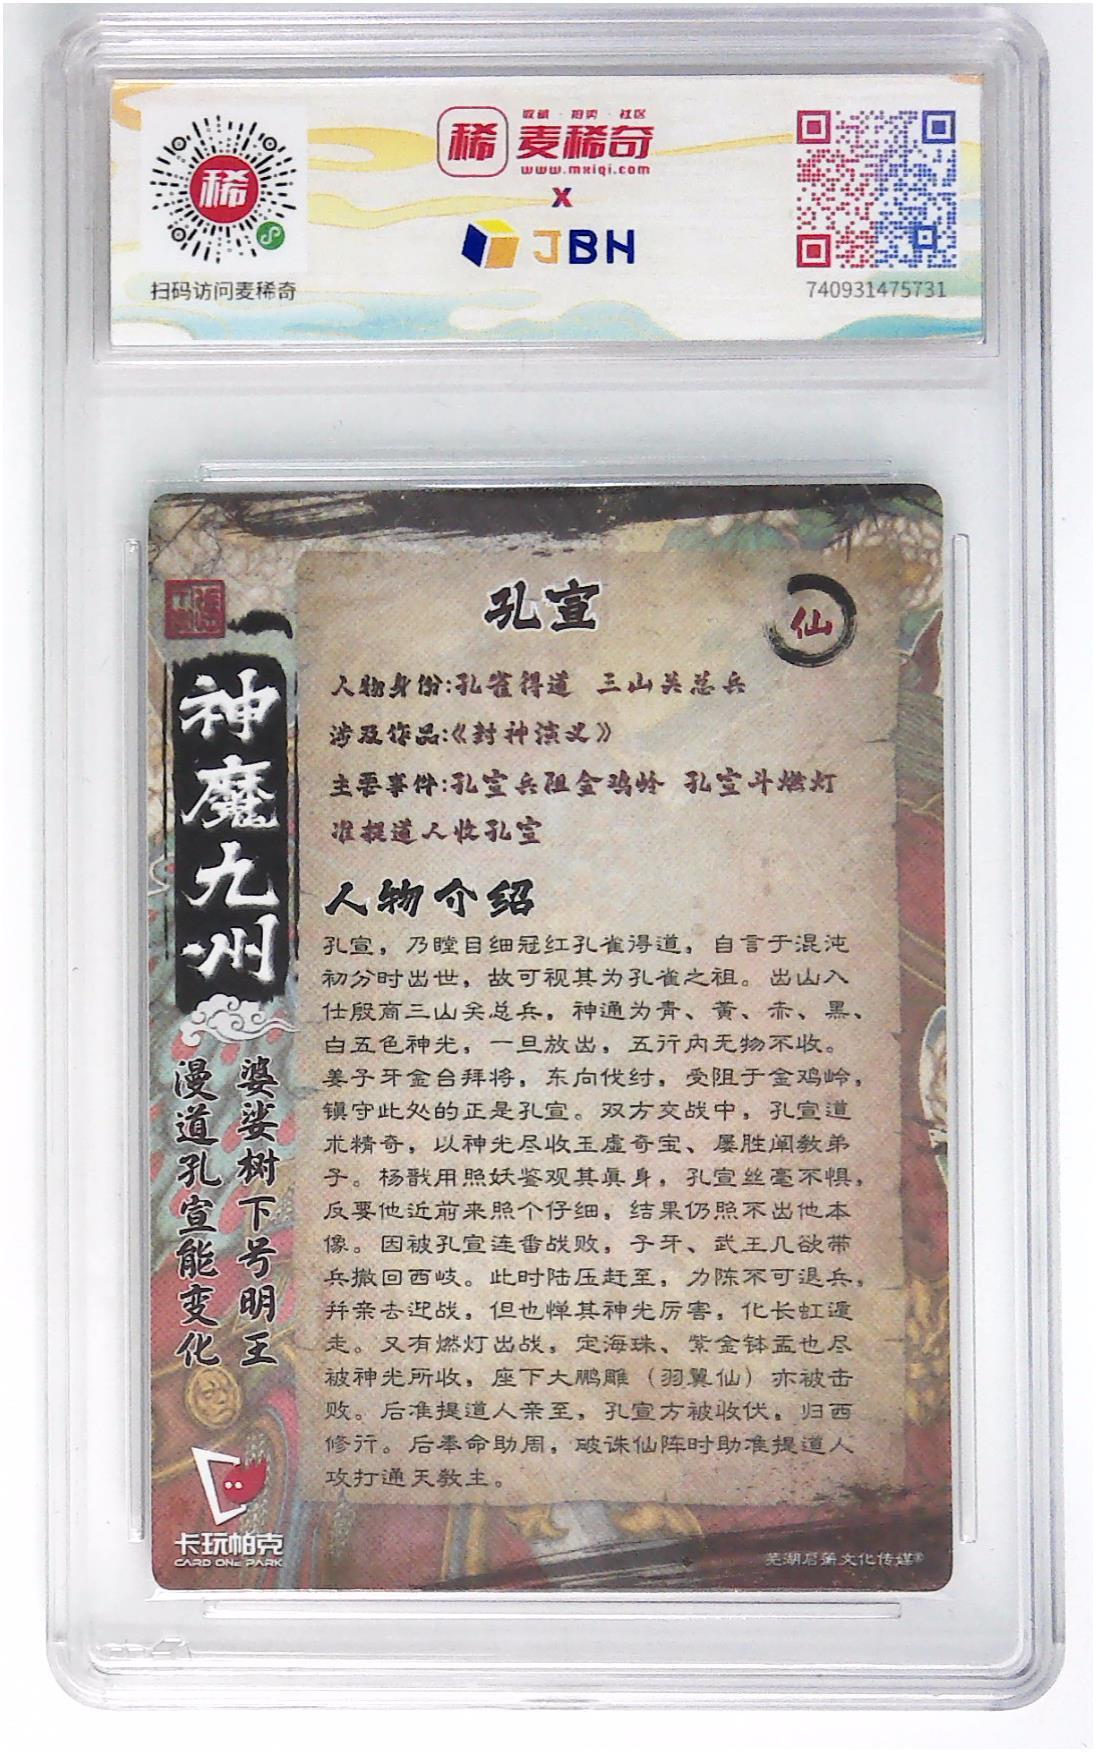 收藏·拍卖·社区
稀 麦稀奇
www.mxiqi.com
X
JBH
稀
扫码访问麦稀奇
740931475731
孔宣
仙
人物身份:孔雀得道 三山关总兵
涉及作品:《封神演义》
主要事件:孔宣兵阻金鸡岭 孔宣斗燃灯
准提道人收孔宣
人物介绍
孔宣，乃瞠目细冠红孔雀得道，自言于混沌
初分时出世，故可视其为孔雀之祖。出山入
仕殷商三山关总兵，神通为青、黄、赤、黑、
白五色神光，一旦放出，五行内无物不收。
姜子牙金台拜将，东向伐纣，受阻于金鸡岭，
镇守此处的正是孔宣。双方交战中，孔宣道
术精奇，以神光尽收玉虚奇宝、屡胜阐教弟
子。杨戬用照妖鉴观其真身，孔宣丝毫不惧，
反要他近前来照个仔细，结果仍照不出他本
像。因被孔宣连番战败，子牙、武王几欲带
兵撤回西岐。此时陆压赶至，力陈不可退兵，
并亲去迎战，但也惮其神光厉害，化长虹遁
走。又有燃灯出战，定海珠、紫金钵盂也尽
被神光所收，座下大鹏雕（羽翼仙）亦被击
败。后准提道人亲至，孔宣方被收伏，归西
修行。后奉命助周，破诛仙阵时助准提道人
攻打通天教主。
神魔九州
婆娑树下号明王
漫道孔宣能变化
卡玩帕克
CARD ONE PARK